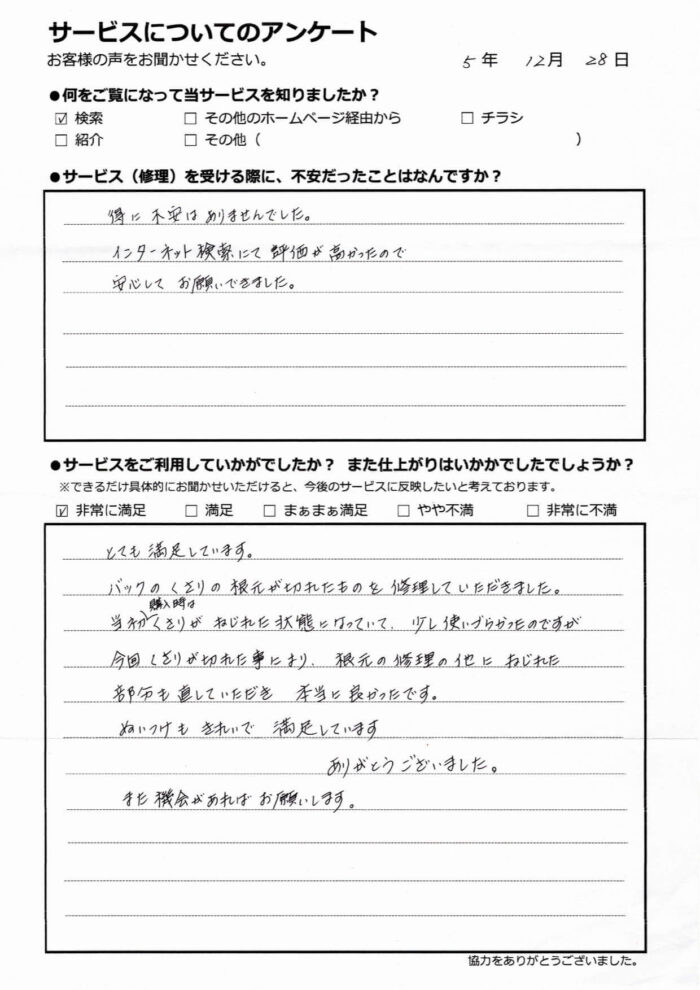 サービスについてのアンケート
お客様の声をお聞かせください。
5年 12月 28日
●何をご覧になって当サービスを知りましたか？
☑ 検索 □ その他のホームページ経由から □ チラシ
□ 紹介 □ その他（ ）
●サービス（修理）を受ける際に、不安だったことはなんですか？
得に不安はありませんでした。
インターネット検索にて評価が高かったので
安心してお願いできました。
●サービスをご利用していかがでしたか？ また仕上がりはいかかでしたでしょうか？
※できるだけ具体的にお聞かせいただけると、今後のサービスに反映したいと考えております。
☑ 非常に満足 □ 満足 □ まぁまぁ満足 □ やや不満 □ 非常に不満
とても満足しています。
バックのくさりの根元が切れたものを修理していただきました。
購入時は
当初くさりがねじれた状態になっていて、少し使いづらかったのですが
今回くさりが切れた事により、根元の修理の他にねじれた
部分も直していただき 本当に良かったです。
ぬいつけもきれいで 満足しています
ありがとうございました。
また機会があればお願いします。
協力をありがとうございました。